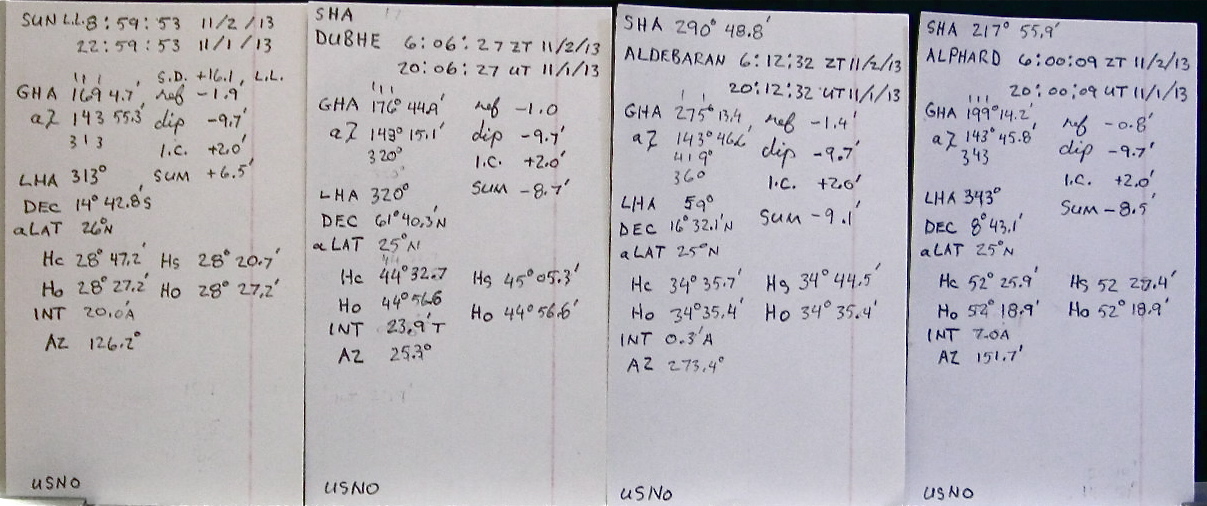 SUN L.L. 8:59:53 11/2/13
22:59:53 11/1/13
S.D. +16.1, L.L.
GHA 169 4.7' ref -1.9'
aλ 143 55.3' dip -9.7'
313 I.C. +2.0'
LHA 313° SUM +6.5'
DEC 14° 42.8'S
aLAT 26°N
Hc 28° 47.2' Hs 28° 20.7'
Ho 28° 27.2' Ho 28° 27.2'
INT 20.0A
AZ 126.2°
USNO
SHA
DUBHE 6:06:27 ZT 11/2/13
20:06:27 UT 11/1/13
GHA 176° 44.9' ref -1.0
aλ 143° 15.1' dip -9.7'
320° I.C. +2.0'
LHA 320° SUM -8.7'
DEC 61° 40.3'N
aLAT 25°N
Hc 44° 32.7 Hs 45° 05.3'
Ho 44° 56.6 Ho 44° 56.6'
INT 23.9' T
AZ 25.3°
USNO
SHA 290° 48.8'
ALDEBARAN 6:12:32 ZT 11/2/13
20:12:32 UT 11/1/13
GHA 275° 13.4 ref -1.4'
aλ 143° 46.6' dip -9.7'
419°
360° I.C. +2.0'
LHA 59° SUM -9.1'
DEC 16° 32.1'N
aLAT 25°N
Hc 34° 35.7' Hs 34° 44.5'
Ho 34° 35.4' Ho 34° 35.4'
INT 0.3'A
AZ 273.4°
USNO
SHA 217° 55.9'
ALPHARD 6:00:09 ZT 11/2/13
20:00:09 UT 11/1/13
GHA 199° 14.2' ref -0.8'
aλ 143° 45.8' dip -9.7'
343 I.C. +2.0'
LHA 343° SUM -8.5'
DEC 8° 43.1'
aLAT 25°N
Hc 52° 25.9' Hs 52 27.4'
Ho 52° 18.9' Ho 52° 18.9'
INT 7.0A
AZ 151.7'
USNO